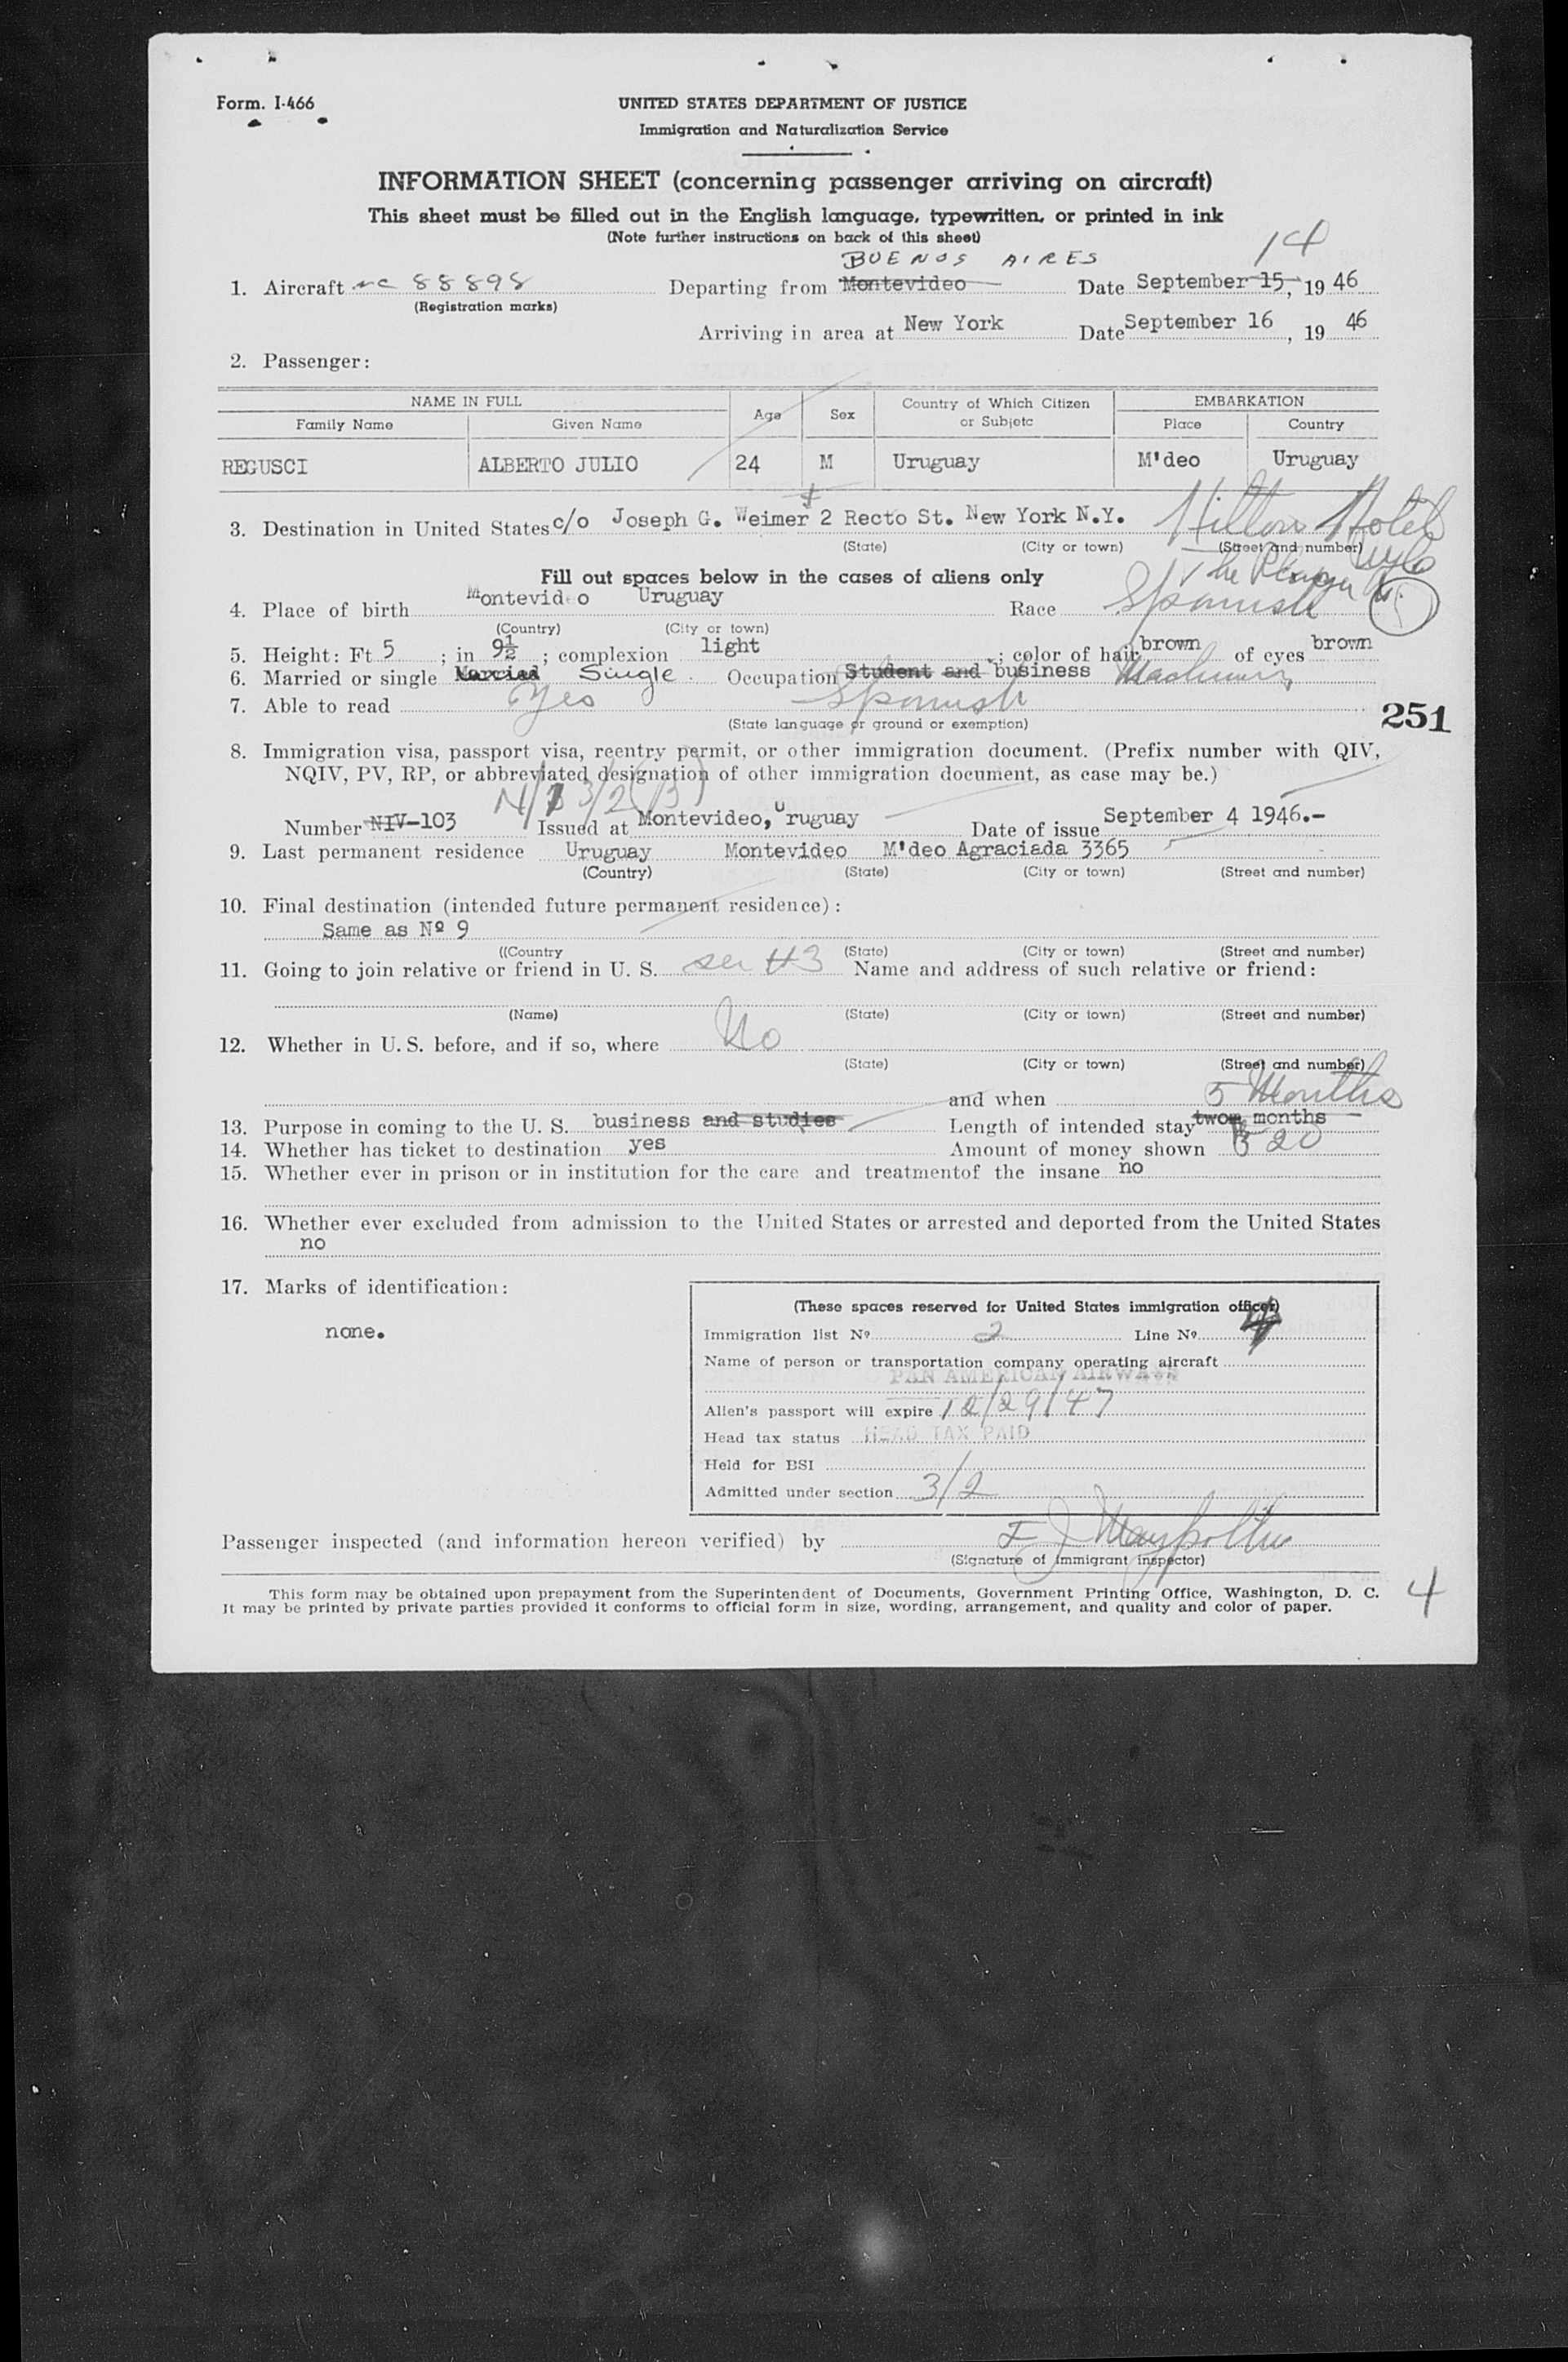 Form. I-466
UNITED STATES DEPARTMENT OF JUSTICE
Immigration and Naturalization Service
INFORMATION SHEET (concerning passenger arriving on aircraft)
This sheet must be filled out in the English language, typewritten, or printed in ink
(Note further instructions on back of this sheet)
BUENOS AIRES 14
1. Aircraft nc 88898 Departing from Montevideo Date September 15, 19 46
(Registration marks)
Arriving in area at New York Date September 16, 19 46
2. Passenger:
NAME IN FULL Age Sex Country of Which Citizen or Subjetc EMBARKATION
Family Name Given Name Place Country
REGUSCI ALBERTO JULIO 24 M Uruguay M'deo Uruguay
3. Destination in United States c/o Joseph G. Weimer 2 Recto St. New York N.Y. Hilton Hotel
(State) (City or town) (Street and number)
The Plaza
Fill out spaces below in the cases of aliens only
4. Place of birth Montevideo Uruguay Race Spanish
(Country) (City or town)
5. Height: Ft 5 ; in 9½ ; complexion light ; color of hair brown of eyes brown
6. Married or single Married Single. Occupation Student and business Machinery
7. Able to read Yes Spanish
(State language or ground or exemption)
251
8. Immigration visa, passport visa, reentry permit, or other immigration document. (Prefix number with QIV,
NQIV, PV, RP, or abbreviated designation of other immigration document, as case may be.)
3/2 (B)
Number NIV-103 Issued at Montevideo, Uruguay Date of issue September 4 1946.-
9. Last permanent residence Uruguay Montevideo M'deo Agraciada 3365
(Country) (State) (City or town) (Street and number)
10. Final destination (intended future permanent residence):
Same as Nº 9
((Country (State) (City or town) (Street and number)
11. Going to join relative or friend in U. S. see #3 Name and address of such relative or friend:
(Name) (State) (City or town) (Street and number)
12. Whether in U. S. before, and if so, where No
(State) (City or town) (Street and number)
and when
5 Months
13. Purpose in coming to the U. S. business and studies Length of intended stay two months
14. Whether has ticket to destination yes Amount of money shown $ 20
15. Whether ever in prison or in institution for the care and treatmentof the insane no
16. Whether ever excluded from admission to the United States or arrested and deported from the United States
no
17. Marks of identification:
none.
(These spaces reserved for United States immigration officer)
Immigration list Nº 2 Line Nº 4
Name of person or transportation company operating aircraft
PAN AMERICAN AIRWAYS
Alien's passport will expire 12/29/47
Head tax status HEAD TAX PAID
Held for BSI
Admitted under section 3/2
Passenger inspected (and information hereon verified) by
(Signature of immigrant inspector)
This form may be obtained upon prepayment from the Superintendent of Documents, Government Printing Office, Washington, D. C.
It may be printed by private parties provided it conforms to official form in size, wording, arrangement, and quality and color of paper.
4